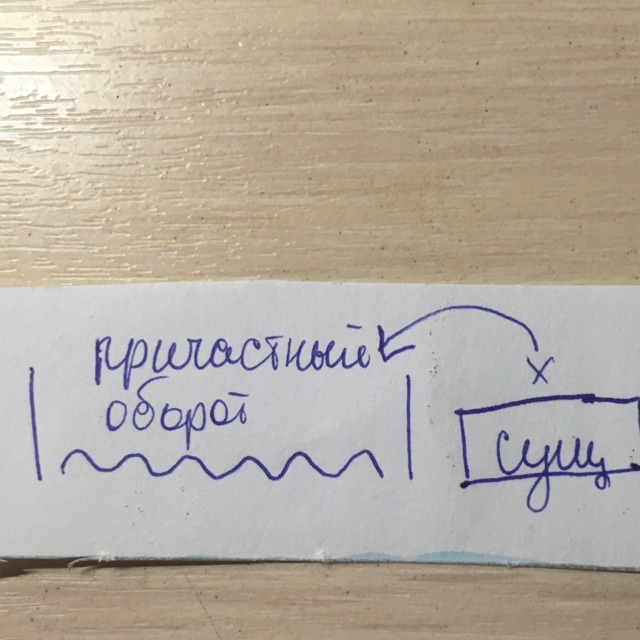 причастный
оборот
x
сущ